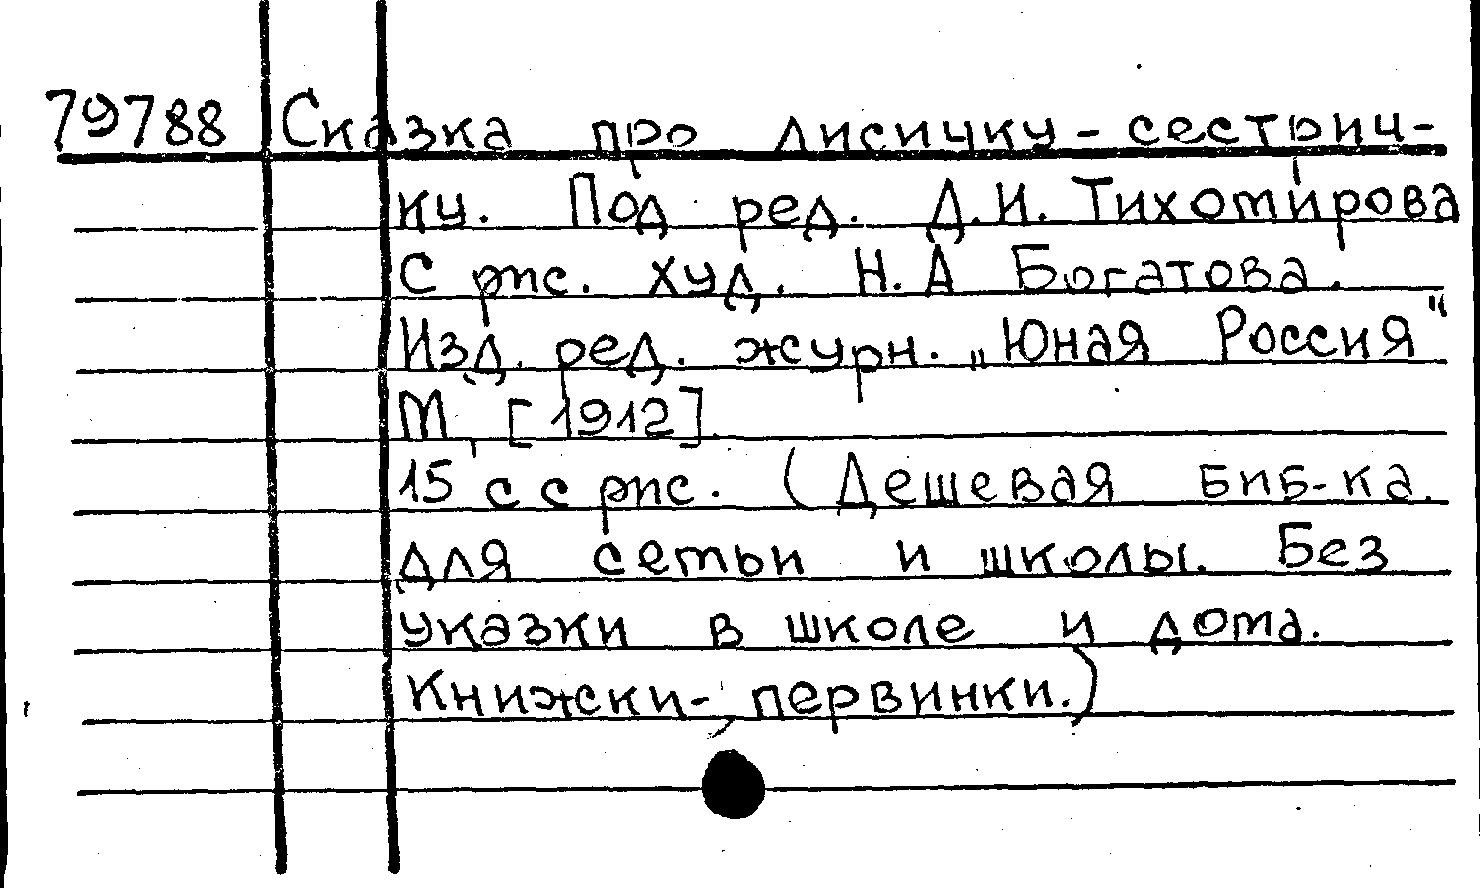 79788 Сказка про лисичку-сестрич-
ку. Под ред. Д.И. Тихомирова
С рис. худ. Н.А Богатова.
Изд. ред. журн. „Юная Россия"
М, [1912].
15 с с рис. (Дешевая биб-ка.
для семьи и школы. Без
указки в школе и дома.
Книжки-первинки.)